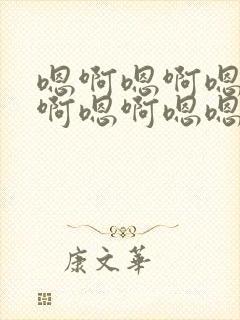 嗯啊嗯啊嗯
啊嗯啊嗯嗯
康文华